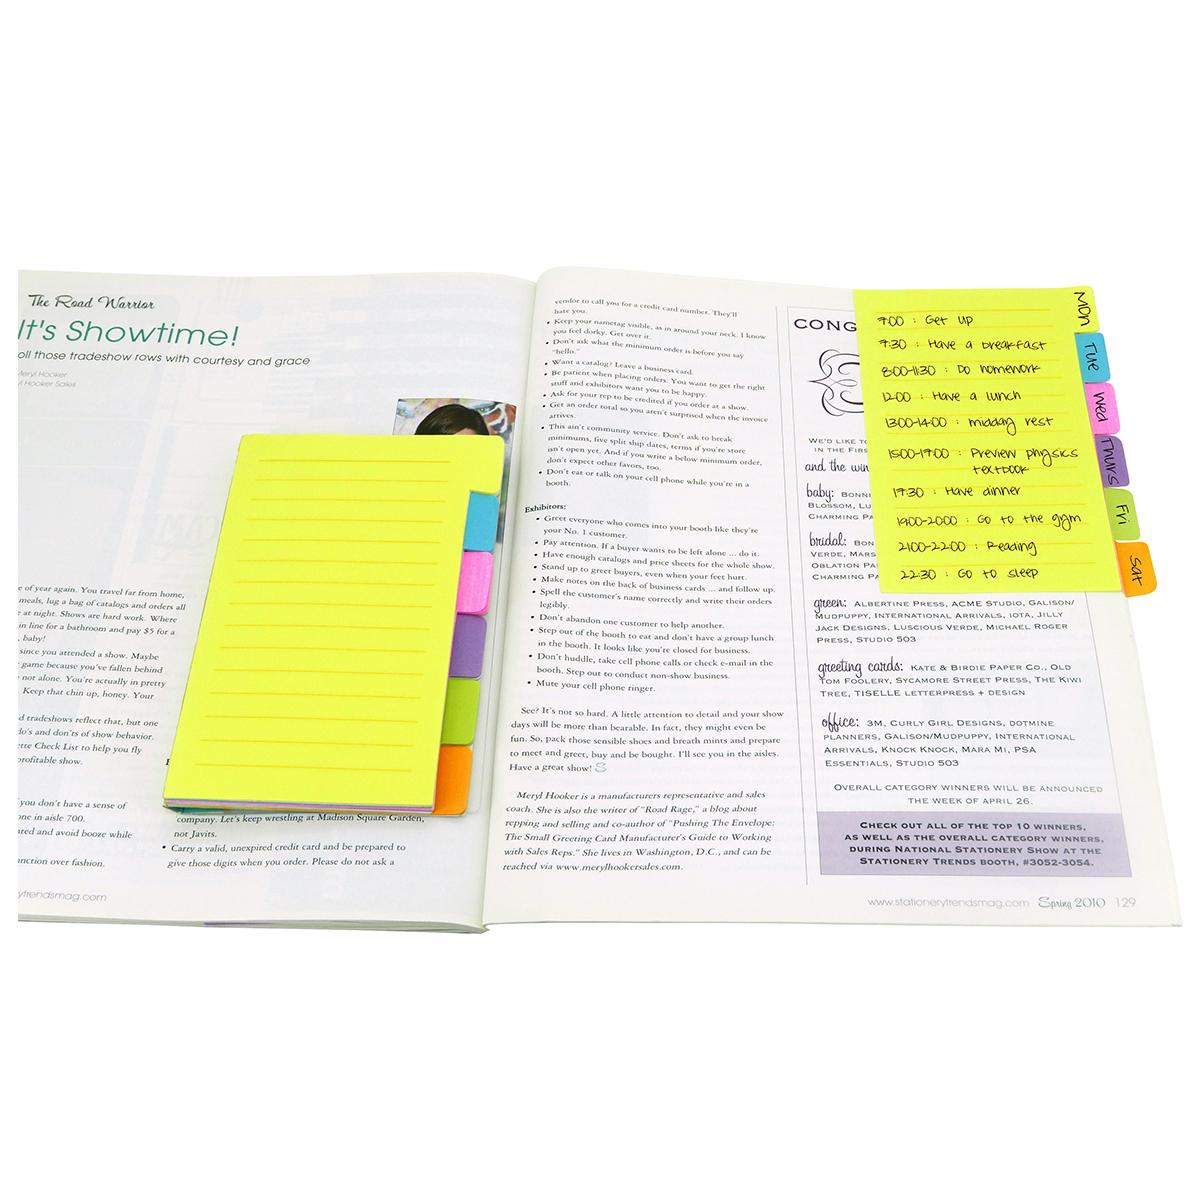 The Road Warrior
It's Showtime!
oll those tradeshow rows with courtesy and grace
Meryl Hooker
Hooker Sales
e of year again. You travel far from home,
meals, lug a bag of catalogs and orders all
at night. Shows are hard work. Where
in line for a bathroom and pay $5 for a
, baby!
since you attended a show. Maybe
game because you've fallen behind
not alone. You're actually in pretty
. Keep that chin up, honey. Your
d tradeshows reflect that, but one
do's and don'ts of show behavior.
ette Check List to help you fly
profitable show.
you don't have a sense of
one in aisle 700.
ated and avoid booze while
unction over fashion.
rytrendsmag.com
company. Let's keep wrestling at Madison Square Garden,
not Javits.
• Carry a valid, unexpired credit card and be prepared to
give those digits when you order. Please do not ask a
vendor to call you for a credit card number. They'll
hate you.
• Keep your nametag visible, as in around your neck. I know
you feel dorky. Get over it.
• Don't ask what the minimum order is before you say
"hello."
• Want a catalog? Leave a business card.
• Be patient when placing orders. You want to get the right
stuff and exhibitors want you to be happy.
• Ask for your rep to be credited if you order at a show.
• Get an order total so you aren't surprised when the invoice
arrives.
• This ain't community service. Don't ask to break
minimums, five split ship dates, terms if you're store
isn't open yet. And if you write a below minimum order,
don't expect other favors, too.
• Don't eat or talk on your cell phone while you're in a
booth.
Exhibitors:
• Greet everyone who comes into your booth like they're
your No. 1 customer.
• Pay attention. If a buyer wants to be left alone ... do it.
• Have enough catalogs and price sheets for the whole show.
• Stand up to greet buyers, even when your feet hurt.
• Make notes on the back of business cards ... and follow up.
• Spell the customer's name correctly and write their orders
legibly.
• Don't abandon one customer to help another.
• Step out of the booth to eat and don't have a group lunch
in the booth. It looks like you're closed for business.
• Don't huddle, take cell phone calls or check e-mail in the
booth. Step out to conduct non-show business.
• Mute your cell phone ringer.
See? It's not so hard. A little attention to detail and your show
days will be more than bearable. In fact, they might even be
fun. So, pack those sensible shoes and breath mints and prepare
to meet and greet, buy and be bought. I'll see you in the aisles.
Have a great show! S
Meryl Hooker is a manufacturers representative and sales
coach. She is also the writer of "Road Rage," a blog about
repping and selling and co-author of "Pushing The Envelope:
The Small Greeting Card Manufacturer's Guide to Working
with Sales Reps." She lives in Washington, D.C., and can be
reached via www.merylhookersales.com.
CONG
WE'D LIKE T
IN THE FIRS
and the win
baby: BONN
BLOSSOM, LU
CHARMING PA
bridal: BON
VERDE, MARS
OBLATION PA
CHARMING PA
green: ALBERTINE PRESS, ACME STUDIO, GALISON/
MUDPUPPY, INTERNATIONAL ARRIVALS, IOTA, JILLY
JACK DESIGNS, LUSCIOUS VERDE, MICHAEL ROGER
PRESS, STUDIO 503
greeting cards: KATE & BIRDIE PAPER CO., OLD
TOM FOOLERY, SYCAMORE STREET PRESS, THE KIWI
TREE, TISELLE LETTERPRESS + DESIGN
office: 3M, CURLY GIRL DESIGNS, DOTMINE
PLANNERS, GALISON/MUDPUPPY, INTERNATIONAL
ARRIVALS, KNOCK KNOCK, MARA MI, PSA
ESSENTIALS, STUDIO 503
OVERALL CATEGORY WINNERS WILL BE ANNOUNCED
THE WEEK OF APRIL 26.
CHECK OUT ALL OF THE TOP 10 WINNERS,
AS WELL AS THE OVERALL CATEGORY WINNERS,
DURING NATIONAL STATIONERY SHOW AT THE
STATIONERY TRENDS BOOTH, #3052-3054.
www.stationerytrendsmag.com Spring 2010 129
7:00 : Get up
7:30 : Have a breakfast
8:00-11:30 : Do homework
12:00 : Have a lunch
13:00-14:00 : midday rest
15:00-17:00 : Preview physics
textbook
17:30 : Have dinner
19:00-20:00 : Go to the gym
21:00-22:00 : Reading
22:30 : Go to sleep
Mon
Tue
Wed
Thurs
Fri
Sat